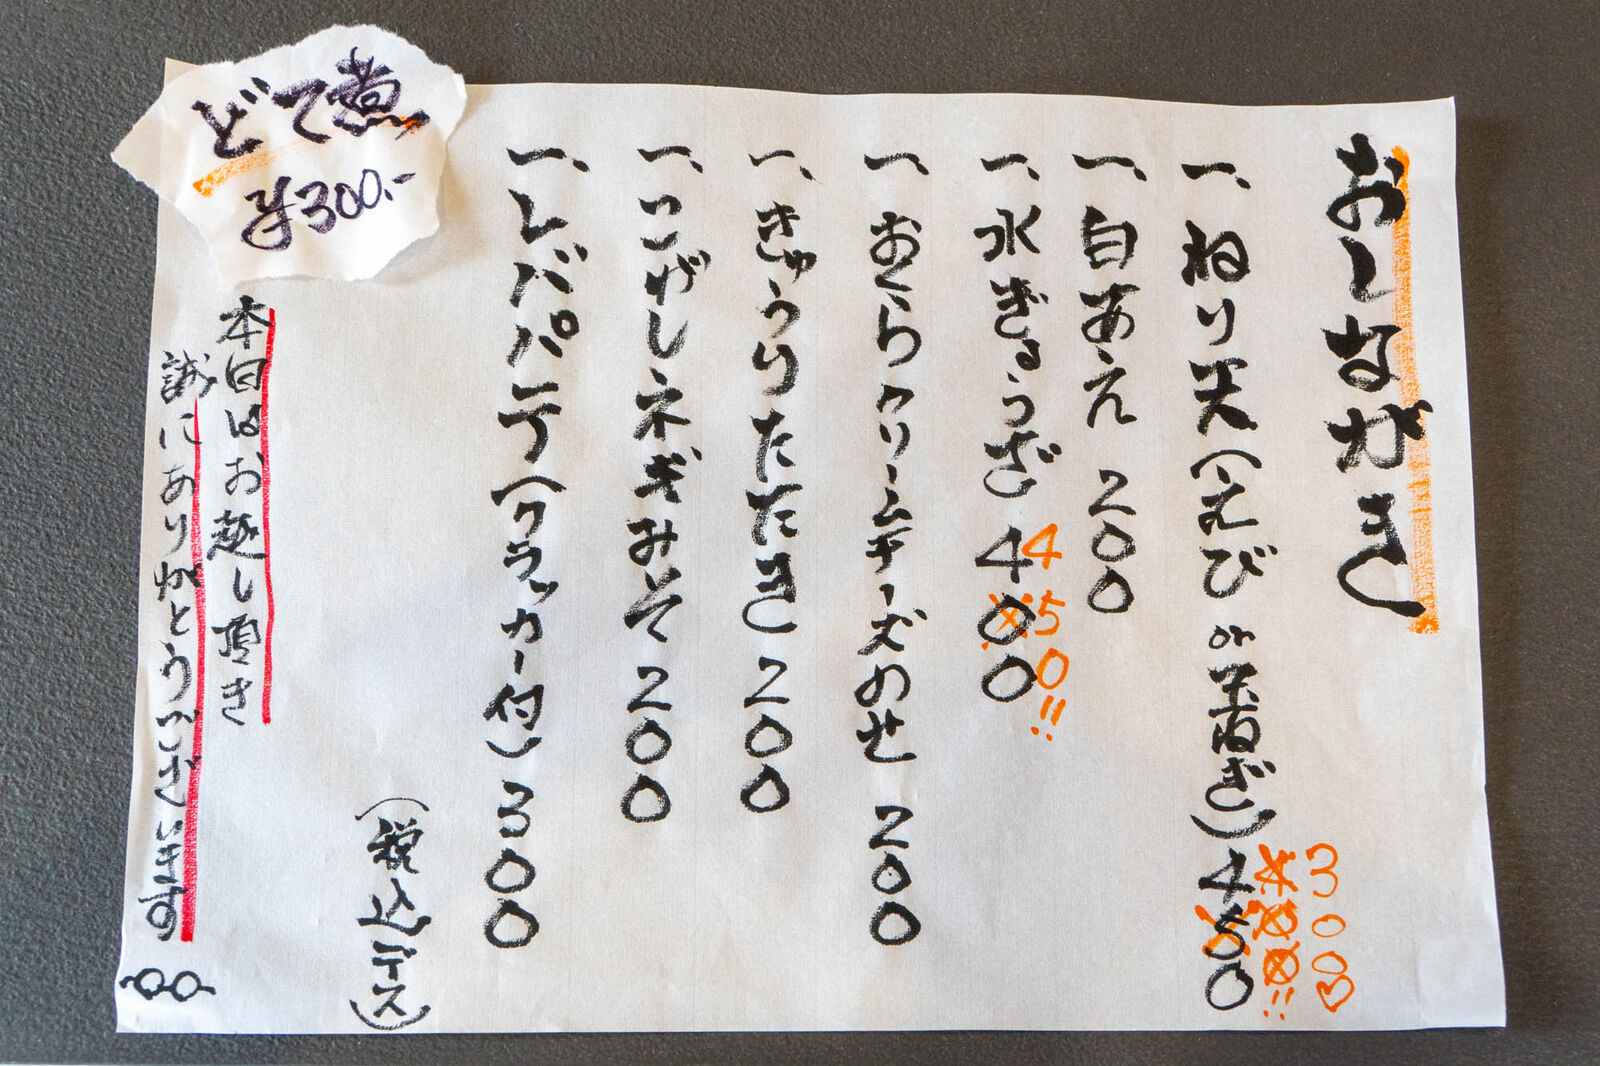 おしながき
一、ねり天(えび or 玉ねぎ)450
400!!
300
一、白あえ 200
一、水ぎょうざ 400
450!!
一、おくらクリームチーズのせ 200
一、きゅうりたたき 200
一、こがしネギみそ 200
一、レバパテ(クラッカー付)300
(税込デス)
どて煮
¥300.-
本日はお越し頂き
誠にありがとうございます